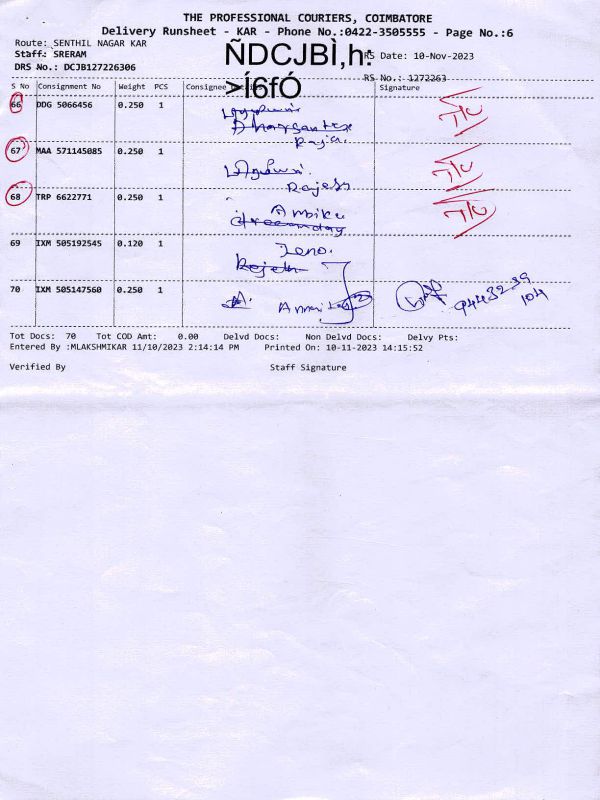 THE PROFESSIONAL COURIERS, COIMBATORE
Delivery Runsheet - KAR - Phone No.:0422-3505555 - Page No.:6
Route: SENTHIL NAGAR KAR
Staff: SRERAM
ÑDCJBÌ,h:
RS Date: 10-Nov-2023
DRS No.: DCJB127226306
>Í6fÓ
RS No.: 1272263
S No Consignment No Weight PCS Consignee Signature
66 DDG 5066456 0.250 1
Raja.
67 MAA 571145085 0.250 1
Rajesh
68 TRP 6622771 0.250 1
Ambika
69 IXM 505192545 0.120 1
Jeno.
70 IXM 505147560 0.250 1
Tot Docs: 70 Tot COD Amt: 0.00 Delvd Docs: Non Delvd Docs: Delvy Pts:
Entered By :MLAKSHMIKAR 11/10/2023 2:14:14 PM Printed On: 10-11-2023 14:15:52
Verified By Staff Signature